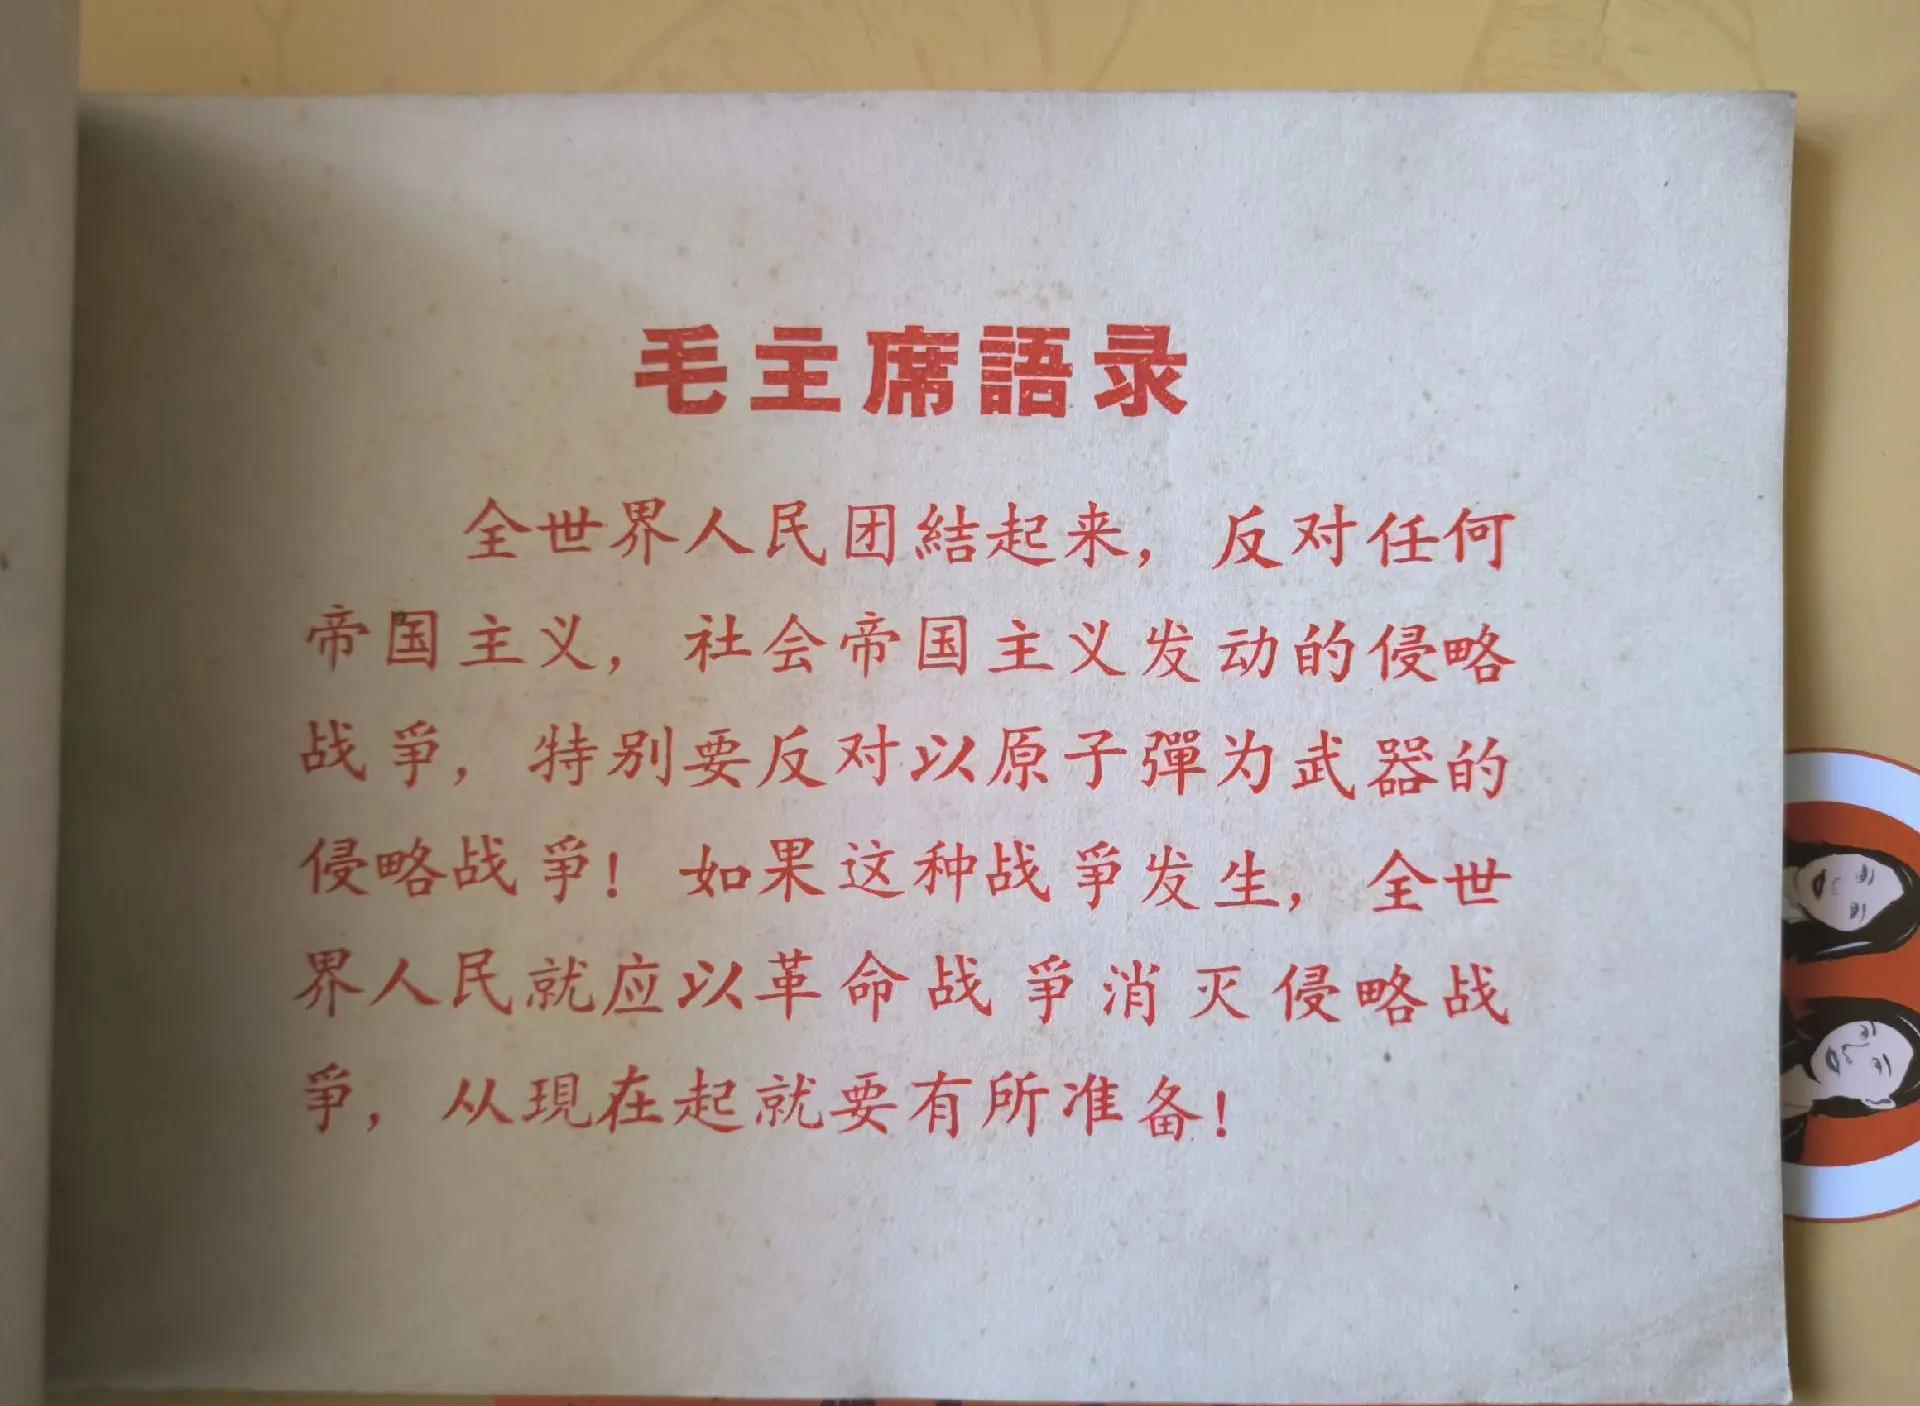 毛主席語录
全世界人民团結起来，反对任何
帝国主义，社会帝国主义发动的侵略
战爭，特别要反对以原子彈为武器的
侵略战爭！如果这种战爭发生，全世
界人民就应以革命战爭消灭侵略战
爭，从現在起就要有所准备！